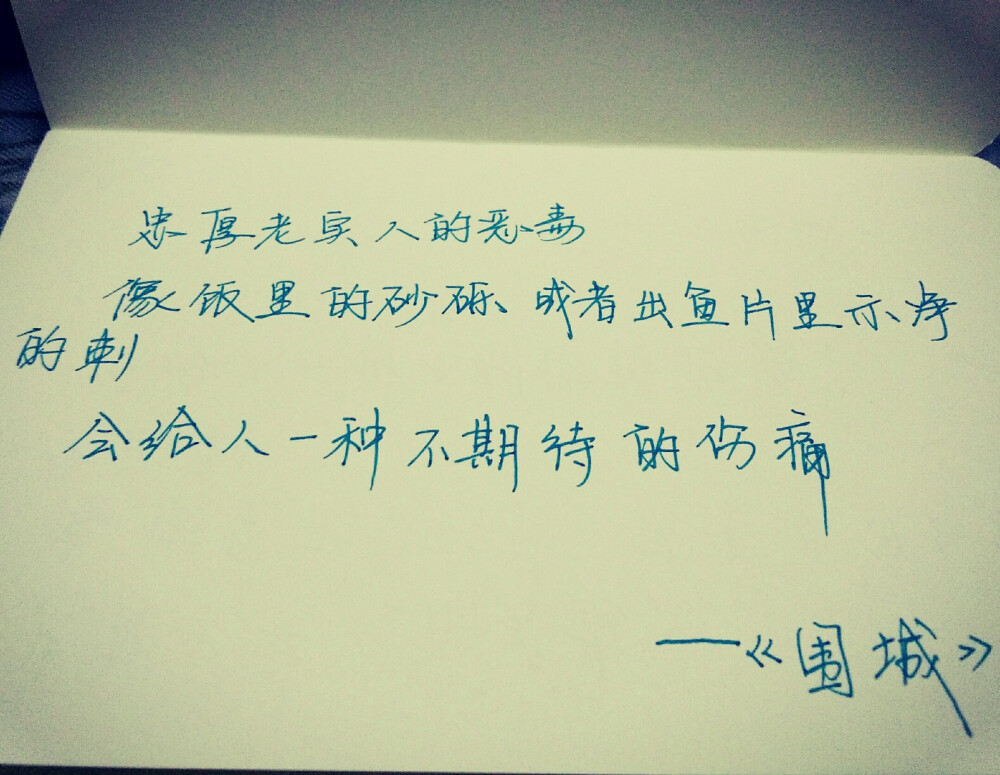 忠厚老实人的恶毒
像饭里的砂砾、或者出鱼片里示净
的刺
会给人一种不期待的伤痛
——《围城》